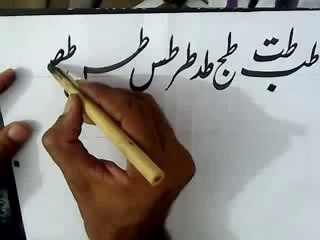 طب طت طج طد طر طس طـ طص